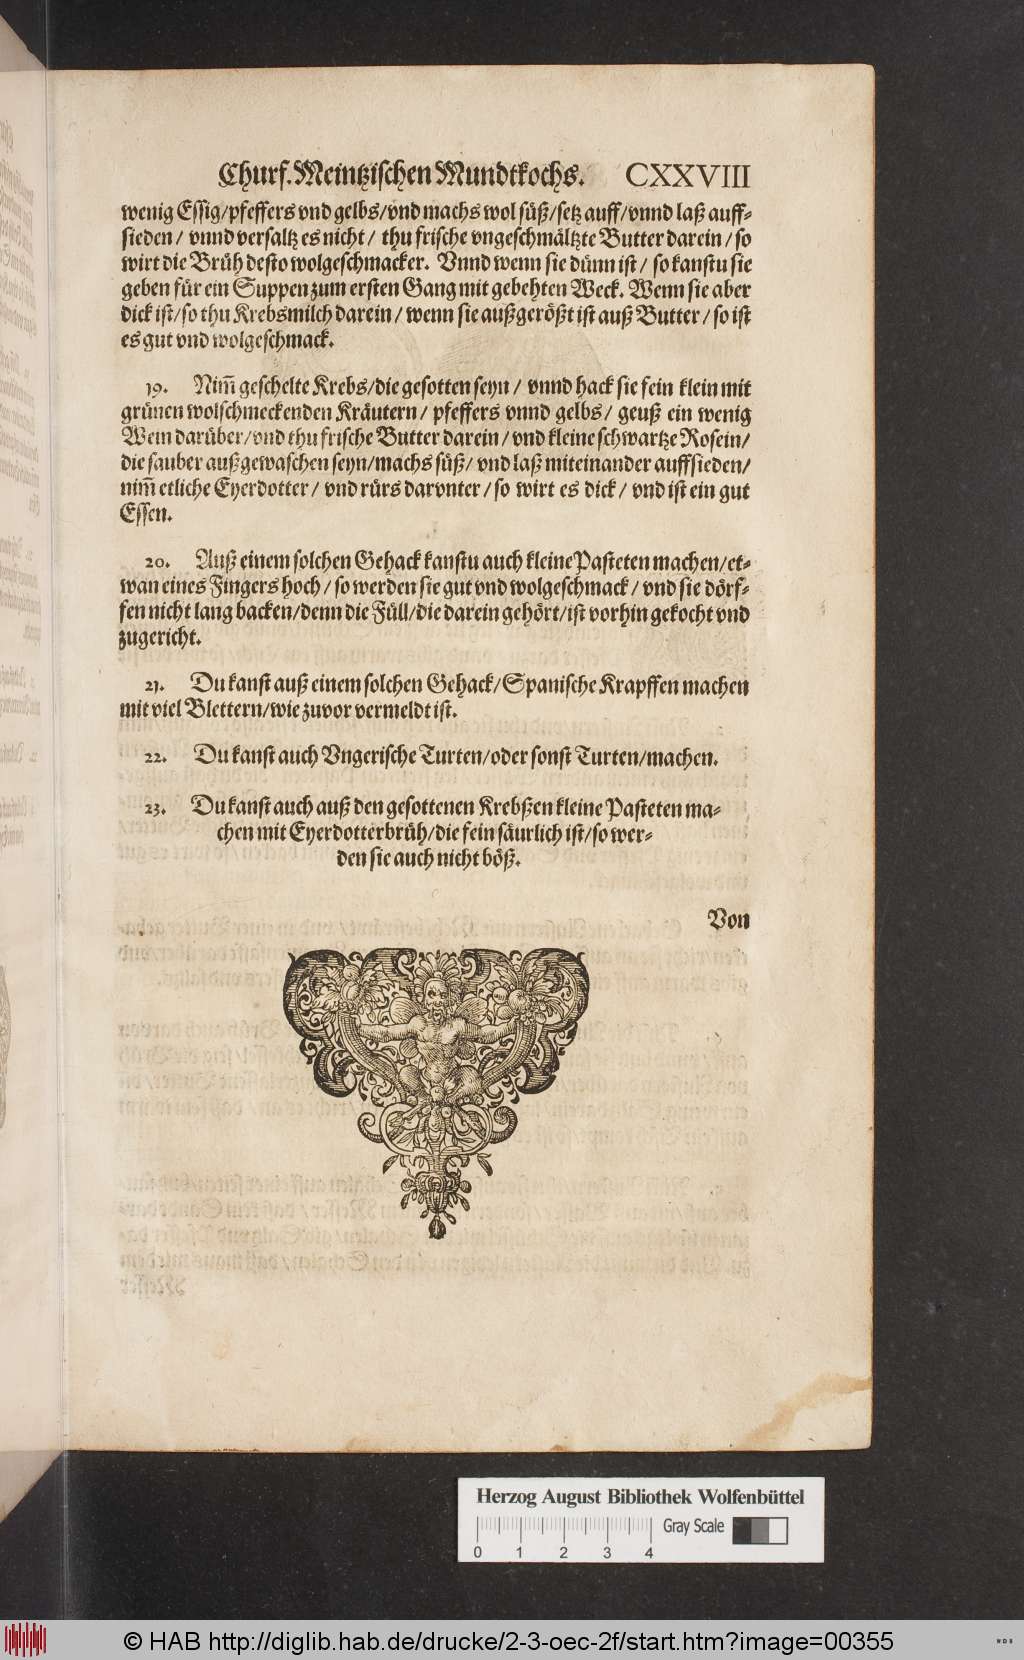 Churf. Meintzischen Mundtkochs. CXXVIII
wenig Essig/pfeffers vnd gelbs/vnd machs wol süß/setz auff/vnnd laß auff-
sieden/ vnnd versaltz es nicht/ thu frische vngeschmältzte Butter darein/ so
wirt die Brüh desto wolgeschmacker. Vnnd wenn sie dünn ist/ so kanstu sie
geben für ein Suppen zum ersten Gang mit gebehten Weck. Wenn sie aber
dick ist/so thu Krebsmilch darein/ wenn sie außgerößt ist auß Butter/ so ist
es gut vnd wolgeschmack.
19. Nim̃ geschelte Krebs/die gesotten seyn/ vnnd hack sie fein klein mit
grünen wolschmeckenden Kräutern/ pfeffers vnnd gelbs/ geuß ein wenig
Wein darüber/vnd thu frische Butter darein/ vnd kleine schwartze Rosein/
die sauber außgewaschen seyn/machs süß/ vnd laß miteinander auffsieden/
nim̃ etliche Eyerdotter/ vnd rürs darvnter/ so wirt es dick/ vnd ist ein gut
Essen.
20. Auß einem solchen Gehack kanstu auch kleine Pasteten machen/et-
wan eines Fingers hoch/ so werden sie gut vnd wolgeschmack/ vnd sie dörf-
fen nicht lang backen/denn die Füll/die darein gehört/ist vorhin gekocht vnd
zugericht.
21. Du kanst auß einem solchen Gehack/Spanische Krapffen machen
mit viel Blettern/wie zuvor vermeldt ist.
22. Du kanst auch Vngerische Turten/oder sonst Turten/machen.
23. Du kanst auch auß den gesottenen Krebßen kleine Pasteten ma-
chen mit Eyerdotterbrüh/die fein säurlich ist/so wer-
den sie auch nicht böß.
Von
Herzog August Bibliothek Wolfenbüttel
Gray Scale
0 1 2 3 4
© HAB http://diglib.hab.de/drucke/2-3-oec-2f/start.htm?image=00355